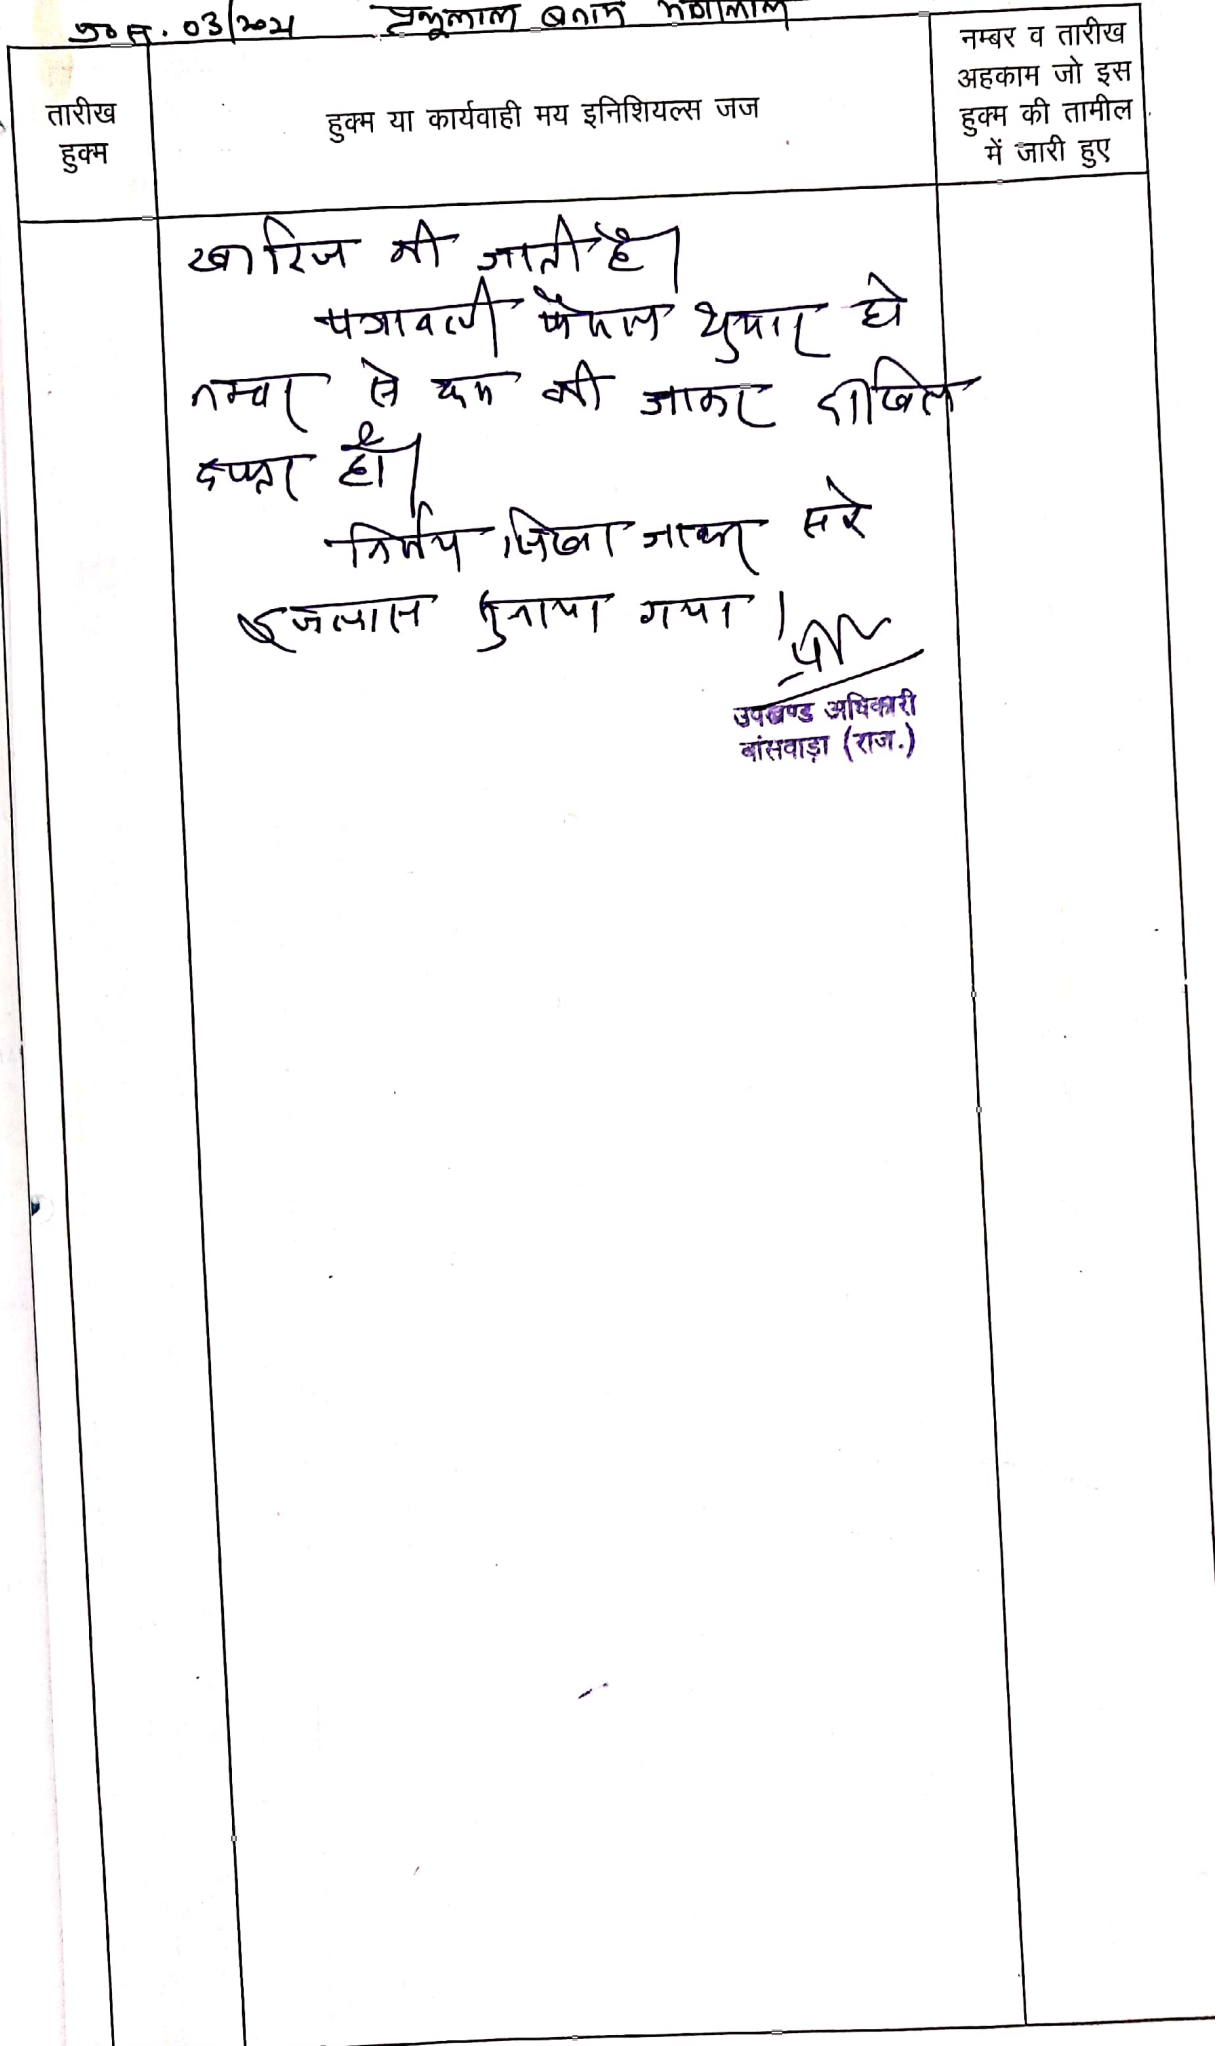 प्र०सं. 03/2021 बनाम
तारीख
हुक्म
हुक्म या कार्यवाही मय इनिशियल्स जज
नम्बर व तारीख
अहकाम जो इस
हुक्म की तामील
में जारी हुए
खारिज की जाती है।
पत्रावली फैसल शुमार हो
नम्बर से कम की जाकर दाखिल
दफ्तर हो।
निर्णय लिखा जाकर सरे
इजलास सुनाया गया।
उपखण्ड अधिकारी
बांसवाड़ा (राज.)